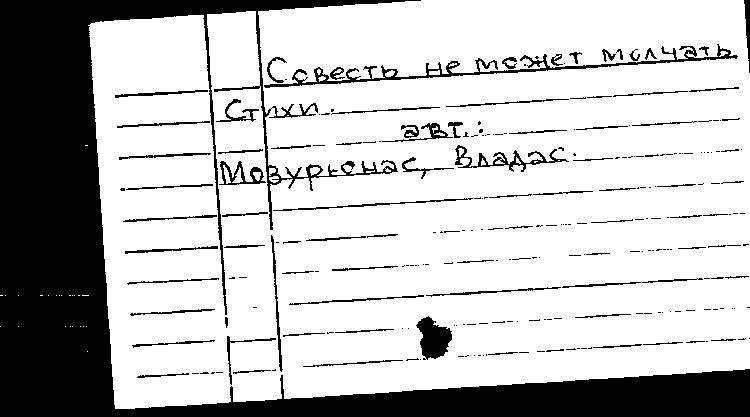 Совесть не может молчать
Стихи.
авт.:
Мозурюнас, Владас.